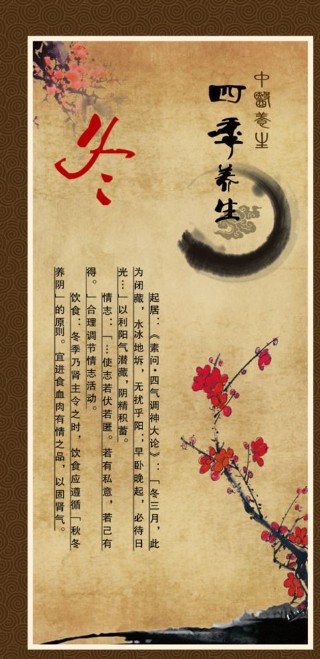 中医养生
四季养生
冬
起居：《素问·四气调神大论》：「冬三月，此
为闭藏，水冰地坼，无扰乎阳；早卧晚起，必待日
光…」以利阳气潜藏，阴精积蓄。
情志：「…使志若伏若匿。若有私意，若己有
得。」合理调节情志活动。
饮食：冬季乃肾主令之时，饮食应遵循「秋冬
养阴」的原则。宜进食血肉有情之品，以固肾气。